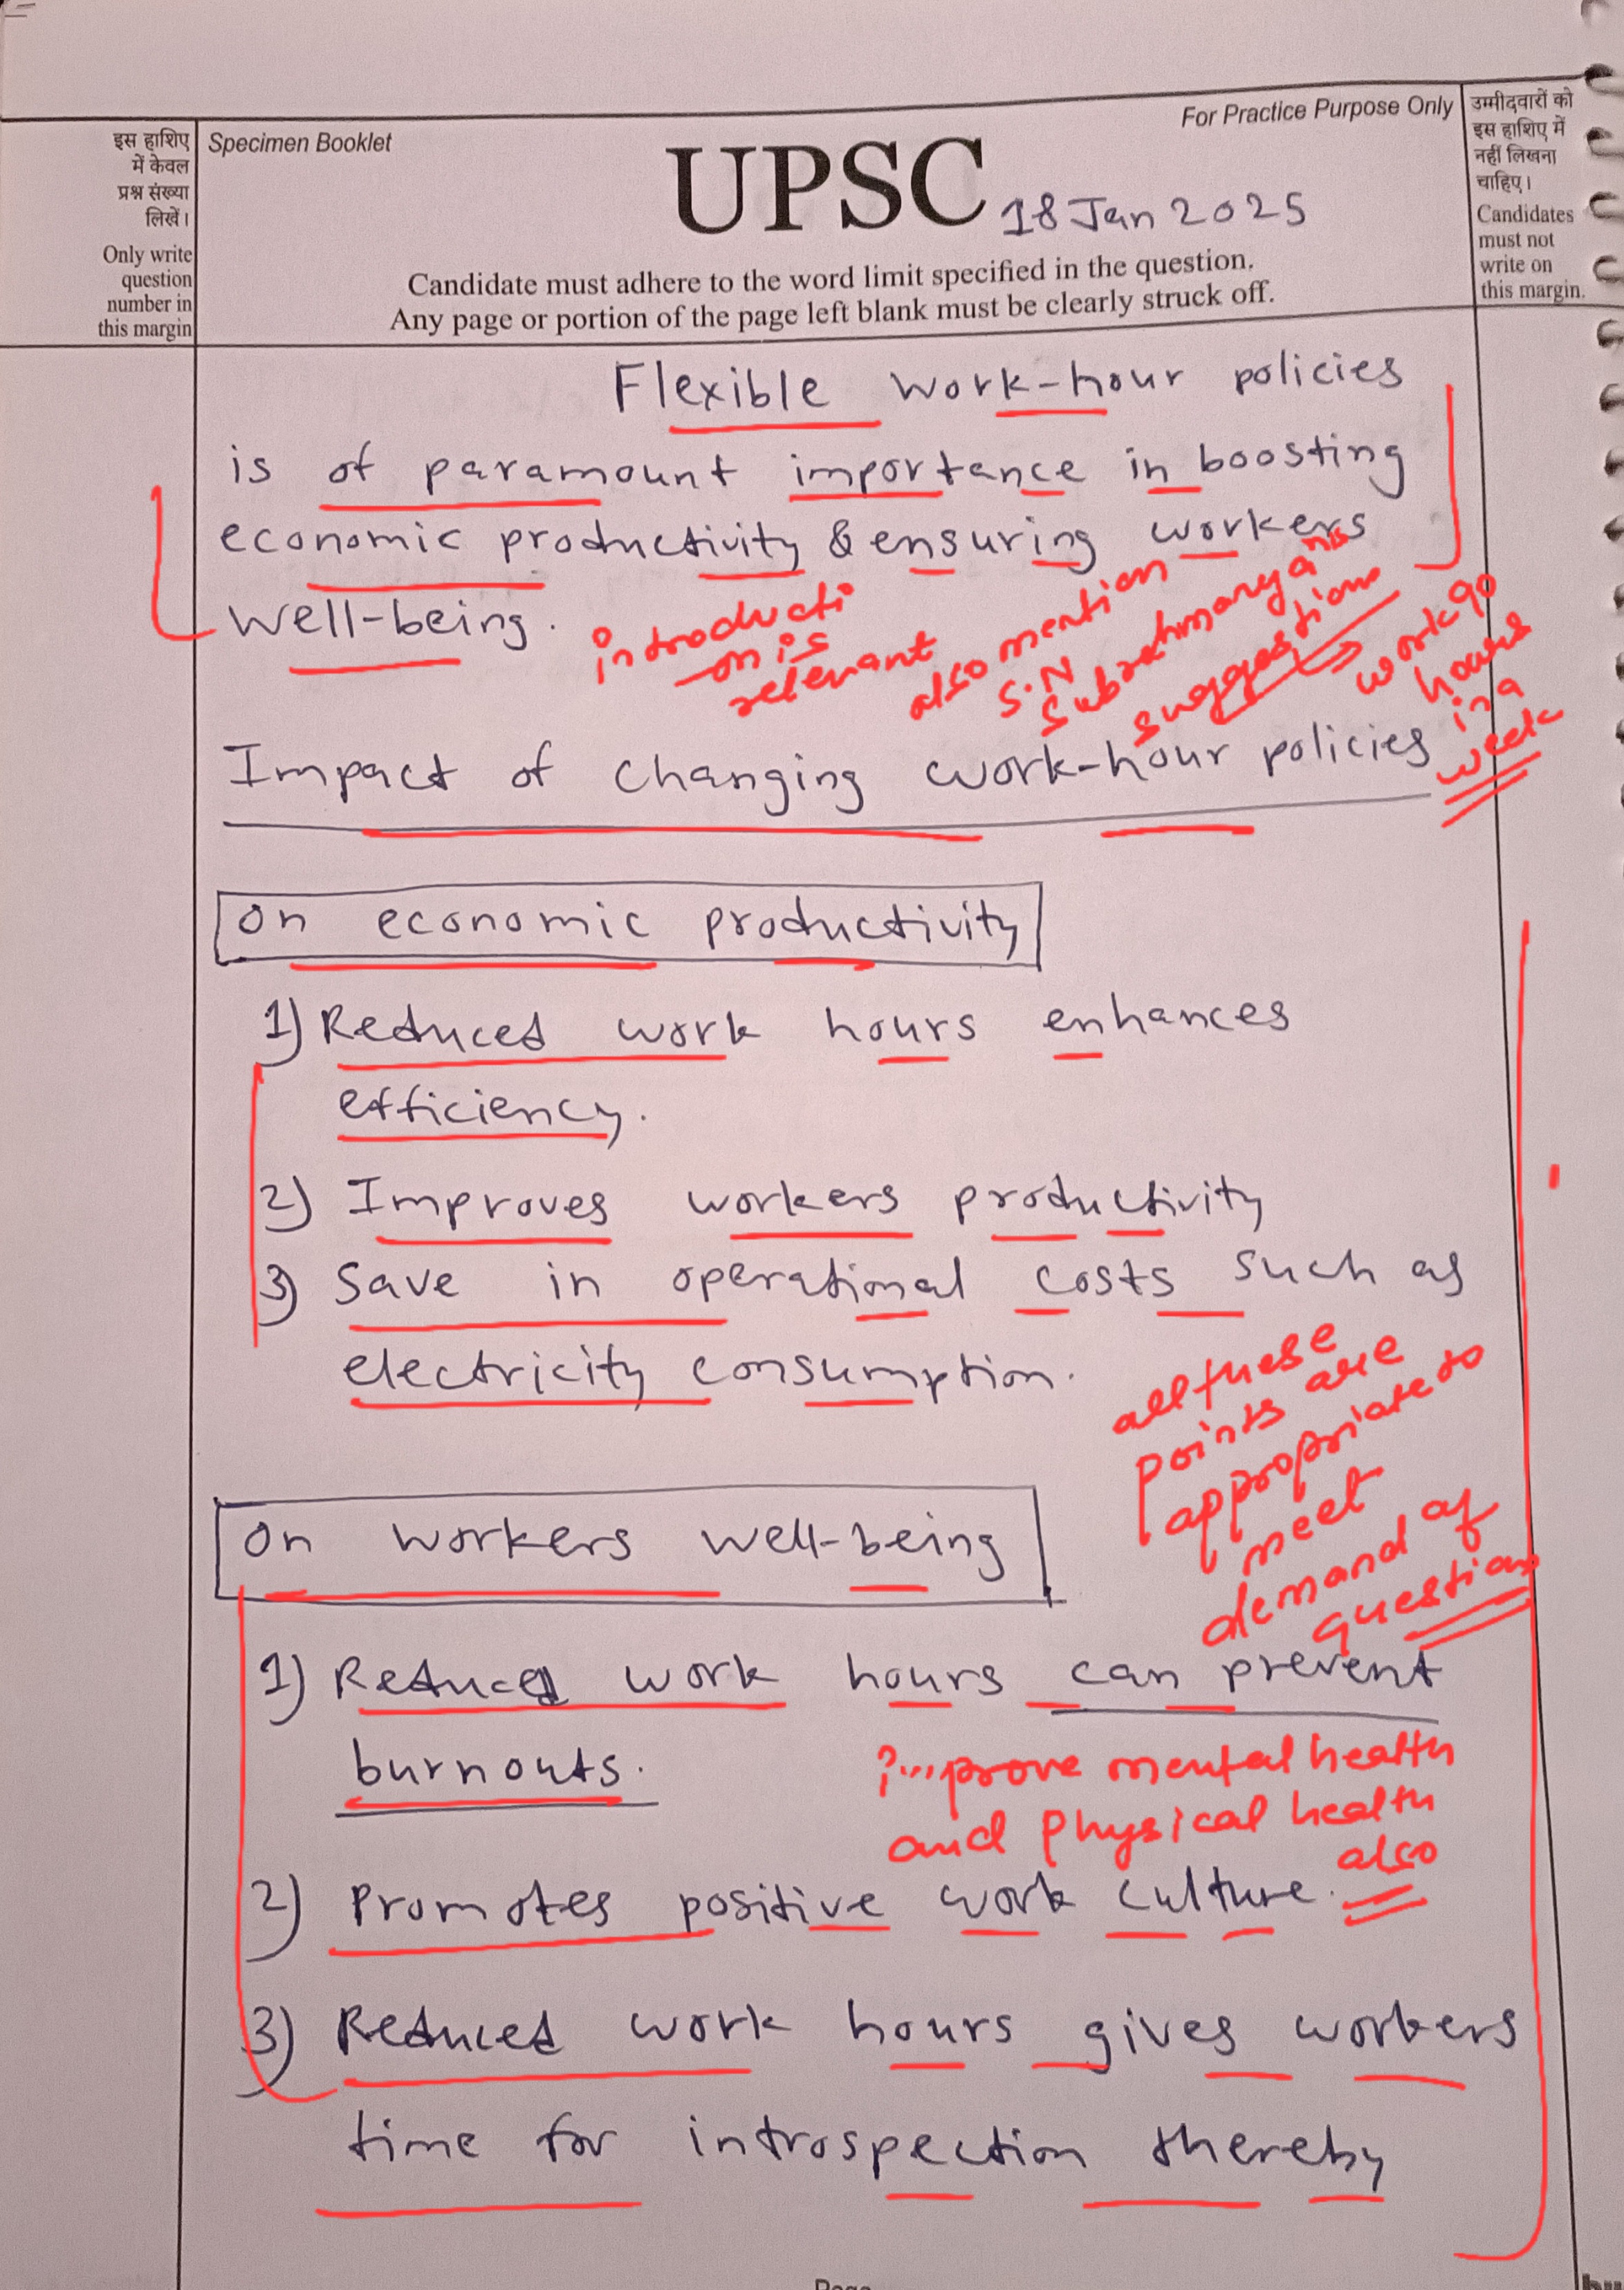 इस हाशिए
में केवल
प्रश्न संख्या
लिखें।
Only write
question
number in
this margin
Specimen Booklet
For Practice Purpose Only
UPSC
18 Jan 2025
Candidate must adhere to the word limit specified in the question.
Any page or portion of the page left blank must be clearly struck off.
उम्मीदवारों को
इस हाशिए में
नहीं लिखना
चाहिए।
Candidates
must not
write on
this margin.
Flexible work-hour policies
is of paramount importance in boosting
economic productivity & ensuring workers
well-being.
introducti
on is
relevant
also mention
S.N
Subrahmanyan's
suggestions
work 90
hours
in a
week
Impact of changing work-hour policies
On economic productivity
1) Reduced work hours enhances
efficiency.
2) Improves workers productivity
3) Save in operational costs such as
electricity consumption.
all these
points are
appropriate to
meet
demand of
question
On workers well-being
1) Reduced work hours can prevent
burnouts.
improve mental health
and physical health
also
2) Promotes positive work culture.
3) Reduced work hours gives workers
time for introspection thereby